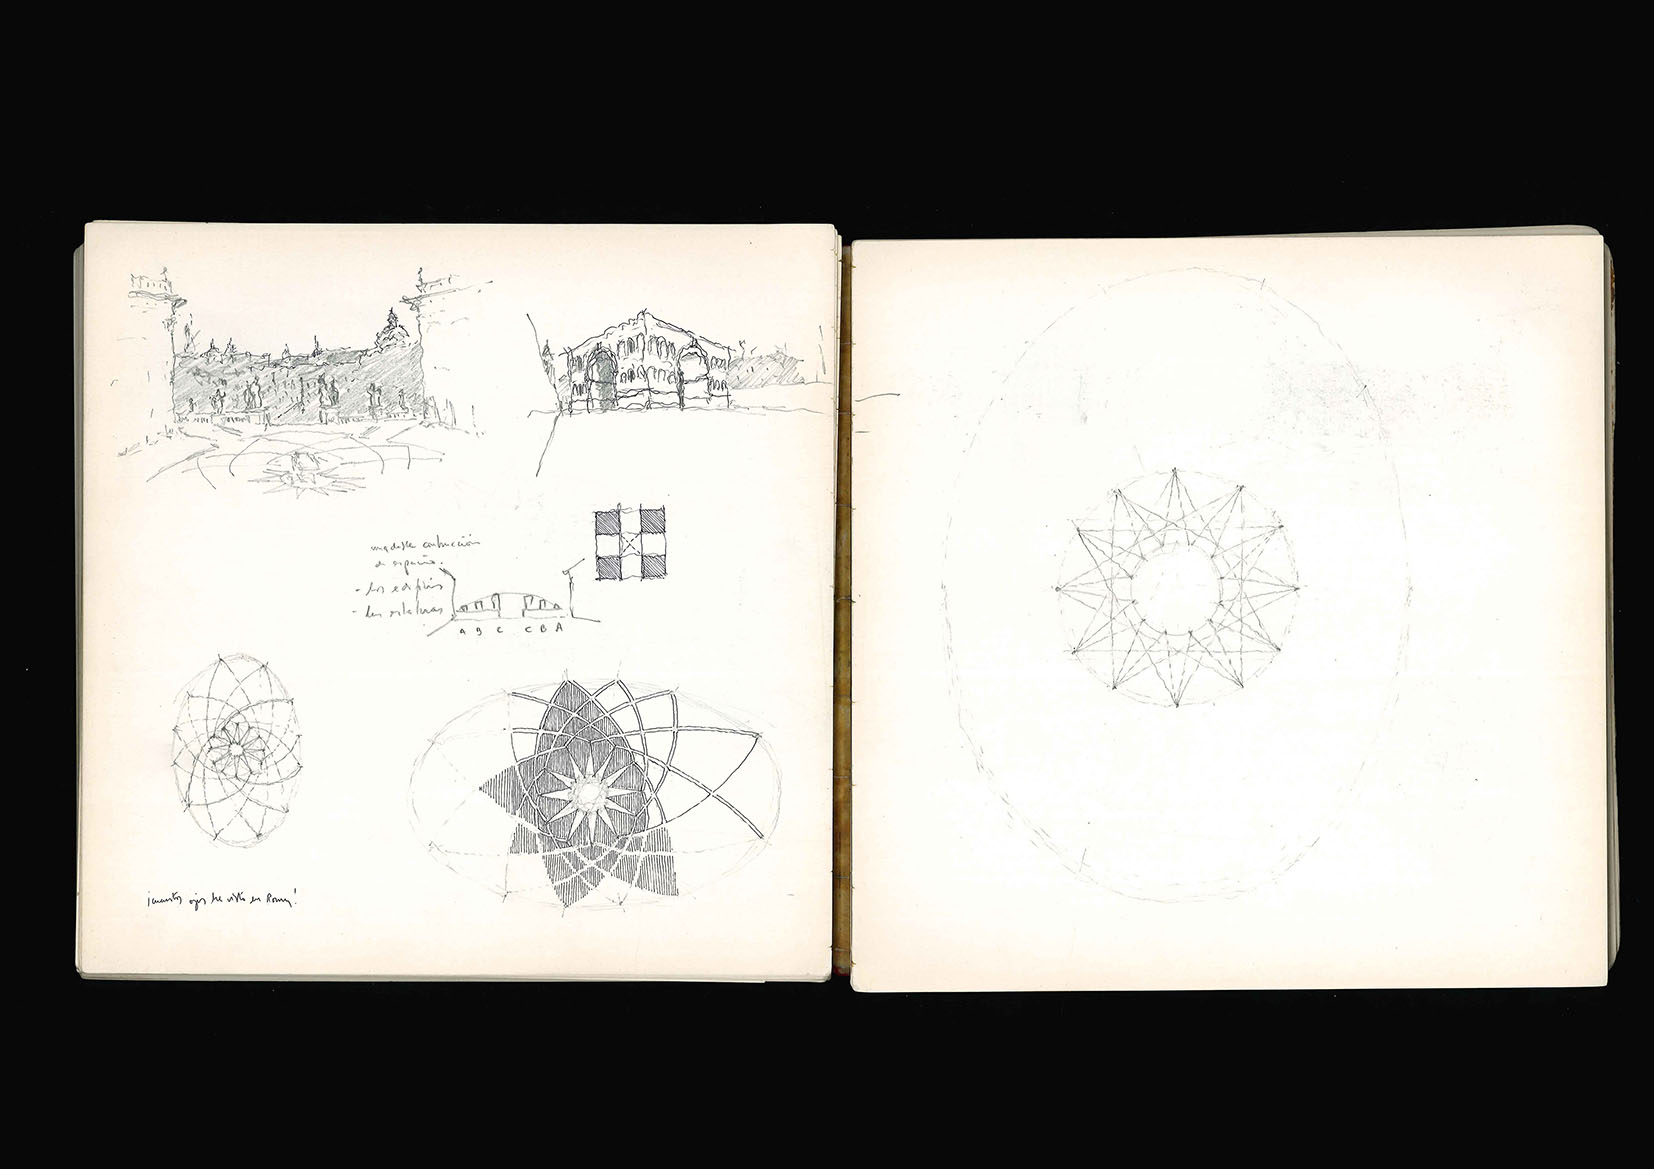 una doble construcción
de espacio.
- los edificios
- las estatuas
A B C C B A
¡cuantos ojos he visto en Roma!